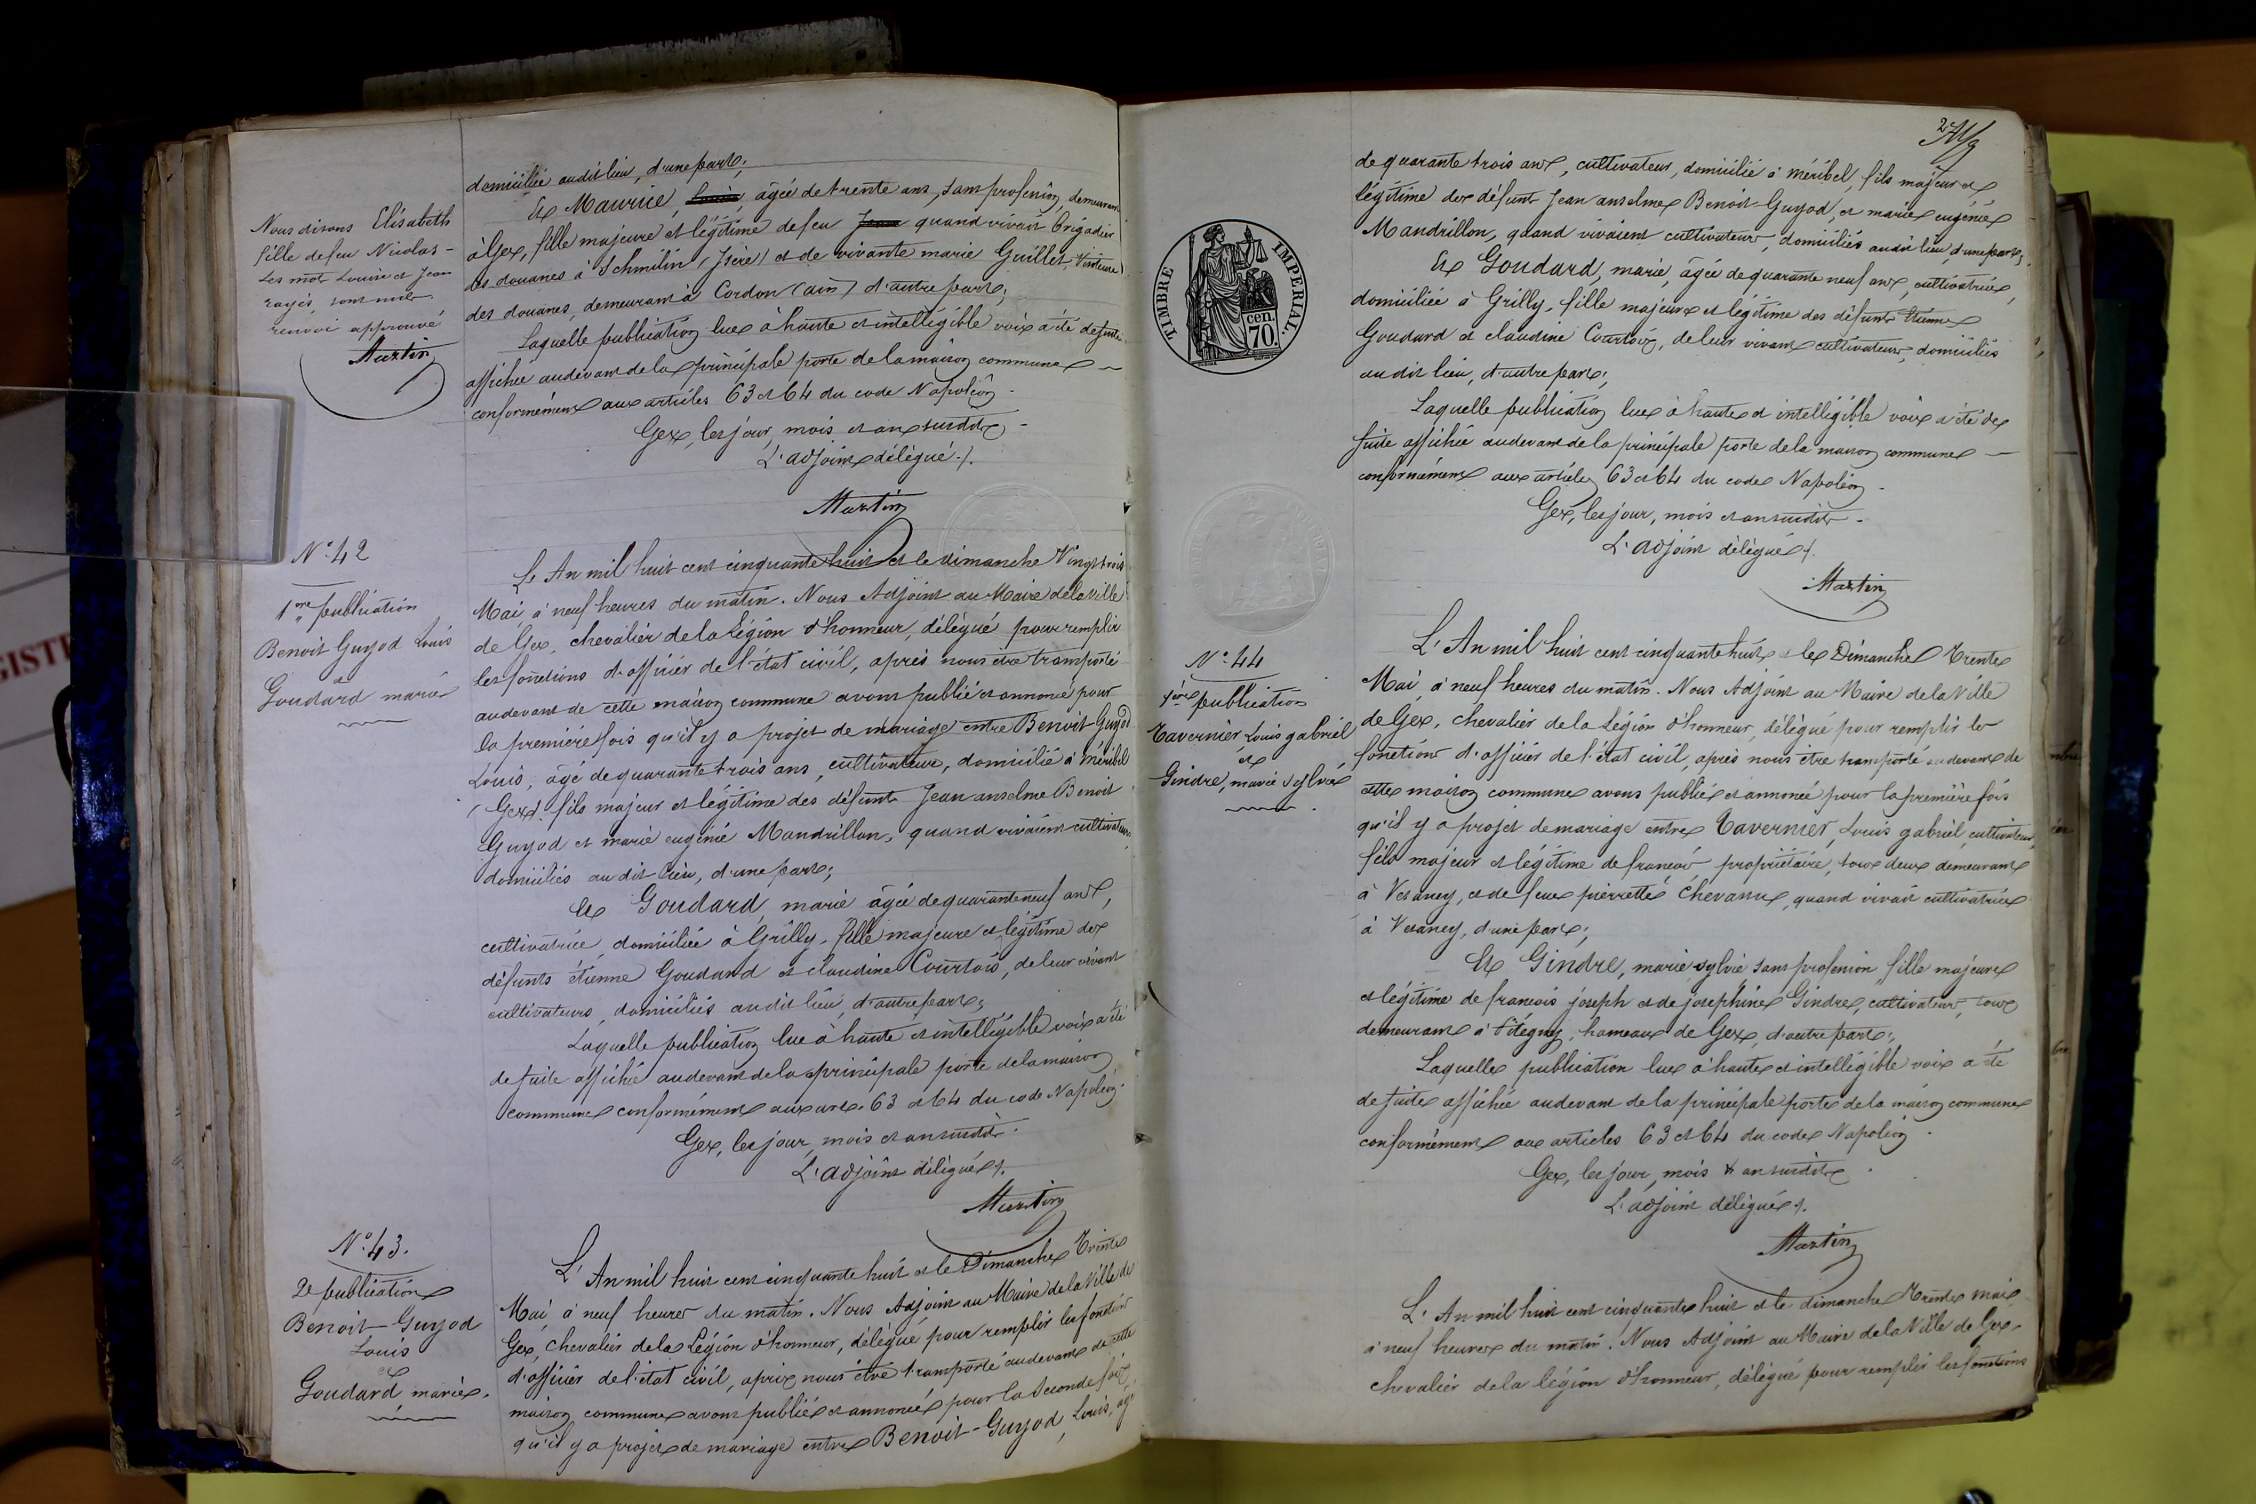 domiciliée audit lieu, d'une part;
Et Maurice, Louise, âgée de trente ans, sans profession, demeurant
à Gex, fille majeure et légitime de feu Jean quand vivait Brigadier
des douanes à Schmilin (Isère) et de vivante marie Guillet, Visiteuse
des douanes, demeurant à Cordon (ain) d'autre part;
Laquelle publication lue à haute et intelligible voix a été de suite
affichée audevant de la principale porte de la maison commune
conformément aux articles 63 et 64 du code Napoléon.
Gex, les jour, mois et an susdits
L'adjoint délégué ./.
Martin
Nous disons Elisabeth
fille de feu Nicolas -
Les mots Louise et Jean
rayés, sont nuls
renvoi approuvé
Martin
N° 42
1ere publication
Benoit Guyod Louis
et
Goudard marie
L'An mil huit cent cinquante huit et le dimanche Vingt trois
Mai, à neuf heures du matin. Nous Adjoint au Maire de la Ville
de Gex, chevalier de la Légion d'honneur, délégué pour remplir
les fonctions d'officier de l'état civil, après nous être transporté
audevant de cette maison commune avons publié et annoncé pour
la première fois qu'il y a projet de mariage entre Benoit-Guyod
Louis, âgé de quarante trois ans, cultivateur, domicilié à méribel
(Gex) fils majeur et légitime des défunts Jean anselme Benoit
Guyod et marie eugénie Mandrillon, quand vivaient cultivateurs
domiciliés au dit lieu, d'une part;
Et Goudard, marie âgée de quarante neuf ans,
cultivatrice, domiciliée à Grilly, fille majeure et légitime des
défunts étienne Goudard et claudine Courtois, de leur vivant
cultivateurs, domiciliés au dit lieu, d'autre part;
Laquelle publication lue à haute et intelligible voix a été
de suite affichée audevant de la principale porte de la maison
commune conformément aux art. 63 et 64 du code Napoléon.
Gex, les jour, mois et an susdits.
L'adjoint délégué ./.
Martin
N° 43.
2e publication
Benoit-Guyod
Louis
et
Goudard, marie.
L'An mil huit cent cinquante huit et le Dimanche Trente
Mai, à neuf heures du matin. Nous Adjoint au Maire de la Ville de
Gex, chevalier de la Légion d'honneur, délégué pour remplir les fonctions
d'officier de l'état civil, après nous être transporté audevant de cette
maison commune avons publié et annoncé pour la seconde fois
qu'il y a projet de mariage entre Benoit-Guyod, Louis, âgé
TIMBRE IMPERIAL.
cen.
70.
de quarante trois ans, cultivateur, domicilié à méribel, fils majeur et
légitime des défunts Jean anselme Benoit-Guyod, et marie eugénie
Mandrillon, quand vivaient cultivateurs, domiciliés audit lieu, d'une part;
Et Goudard, marie, âgée de quarante neuf ans, cultivatrice,
domiciliée à Grilly, fille majeure et légitime des défunts Etienne
Goudard et claudine Courtois, de leur vivant cultivateurs, domiciliés
au dit lieu, d'autre part;
Laquelle publication lue à haute et intelligible voix a été de
suite affichée audevant de la principale porte de la maison commune
conformément aux articles 63 et 64 du code Napoléon.
Gex, les jour, mois et an susdits.
L'adjoint délégué ./.
Martin
N° 44
1ère publication
Tavernier, Louis gabriel
et
Gindre, marie sylvie
L'An mil huit cent cinquante huit et le Dimanche Trente
Mai, à neuf heures du matin. Nous Adjoint au Maire de la Ville
de Gex, chevalier de la Légion d'honneur, délégué pour remplir les
fonctions d'officier de l'état civil, après nous être transporté audevant de
cette maison commune avons publié et annoncé pour la première fois
qu'il y a projet de mariage entre Tavernier, Louis gabriel, cultivateur,
fils majeur et légitime de francois propriétaire, tous deux demeurant
à Vesancy, et de feue pierrette Chevassu, quand vivait cultivatrice
à Vesancy, d'une part;
Et Gindre, marie sylvie sans profession, fille majeure
et légitime de francois joseph et de josephine Gindre, cultivateurs, tous
demeurant à Pitegny, hameau de Gex, d'autre part;
Laquelle publication lue à haute et intelligible voix a été
de suite affichée audevant de la principale porte de la maison commune
conformément aux articles 63 et 64 du code Napoléon.
Gex, les jour, mois & an susdits.
L'adjoint délégué ./.
Martin
L'An mil huit cent cinquante huit et le dimanche Trente mai
à neuf heures du matin. Nous Adjoint au Maire de la Ville de Gex,
chevalier de la légion d'honneur, délégué pour remplir les fonctions